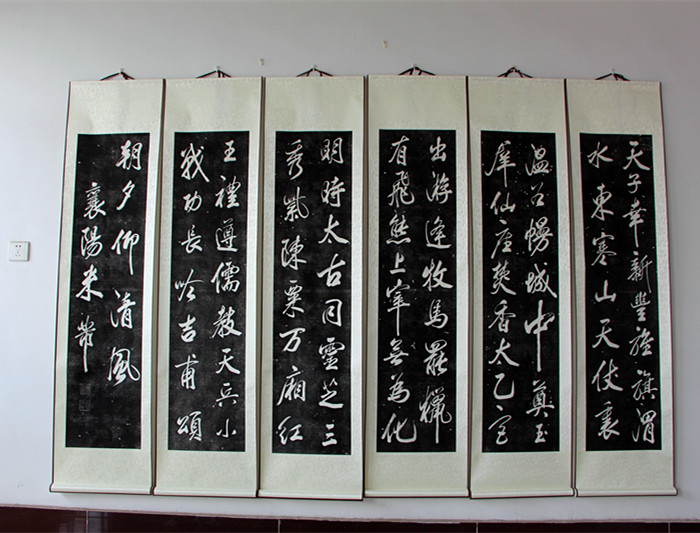 天子幸新豐旌旗渭
水東寒山天仗裏
温谷幔城中奠玉
羣仙座焚香太乙宫
出游逢牧馬罷獵
有飛熊上宰無為化
明時太古同靈芝三
秀紫陳粟万廂红
王禮遵儒教天兵小
戰功長吟吉甫頌
朝夕仰清風
襄陽米芾